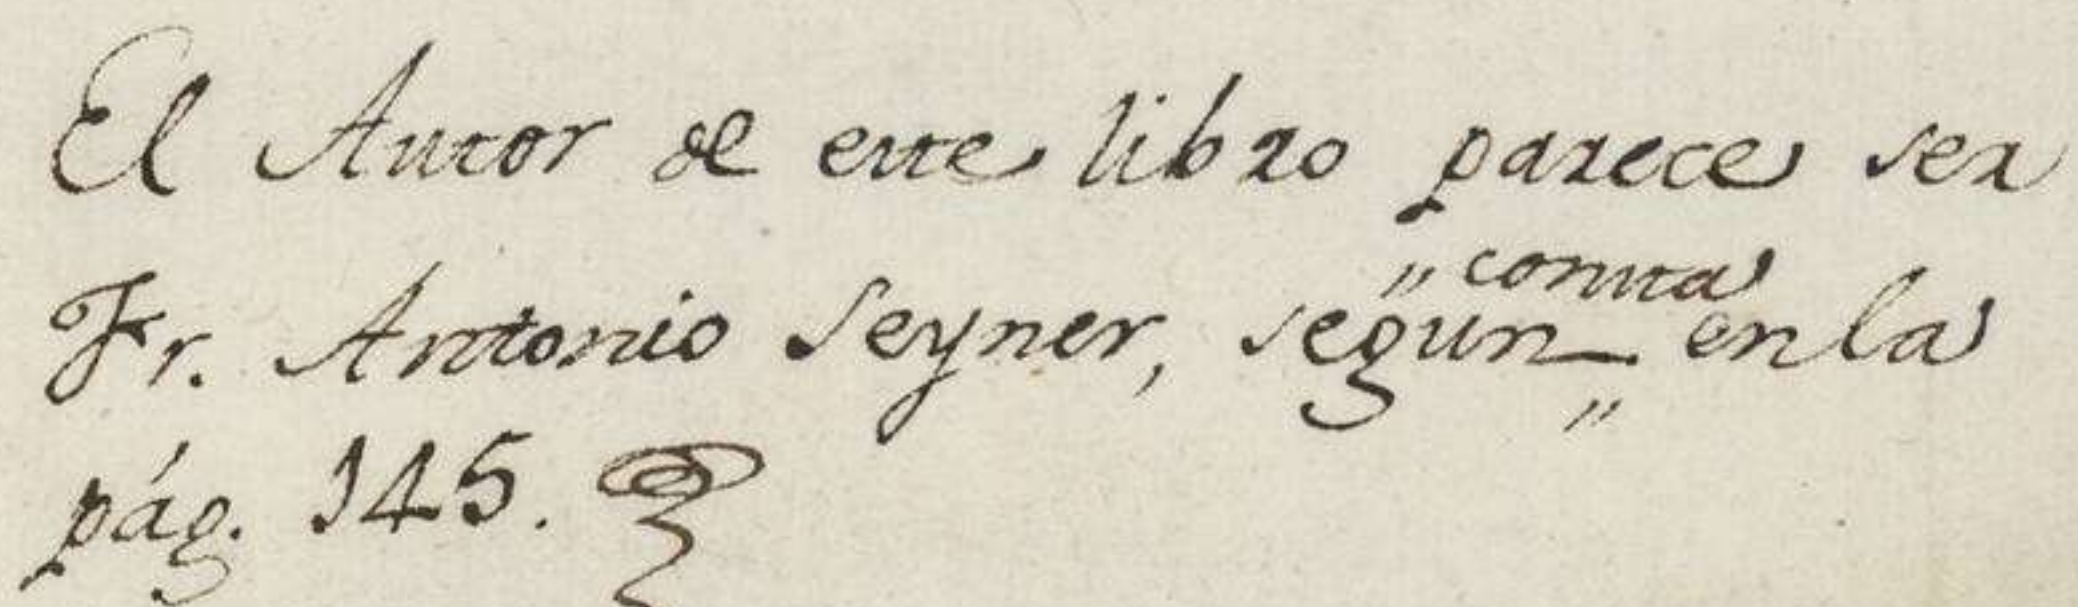 El Autor de este libro parece ser
Fr. Antonio Seyner, segun „ consta „ en la
pág. 145.